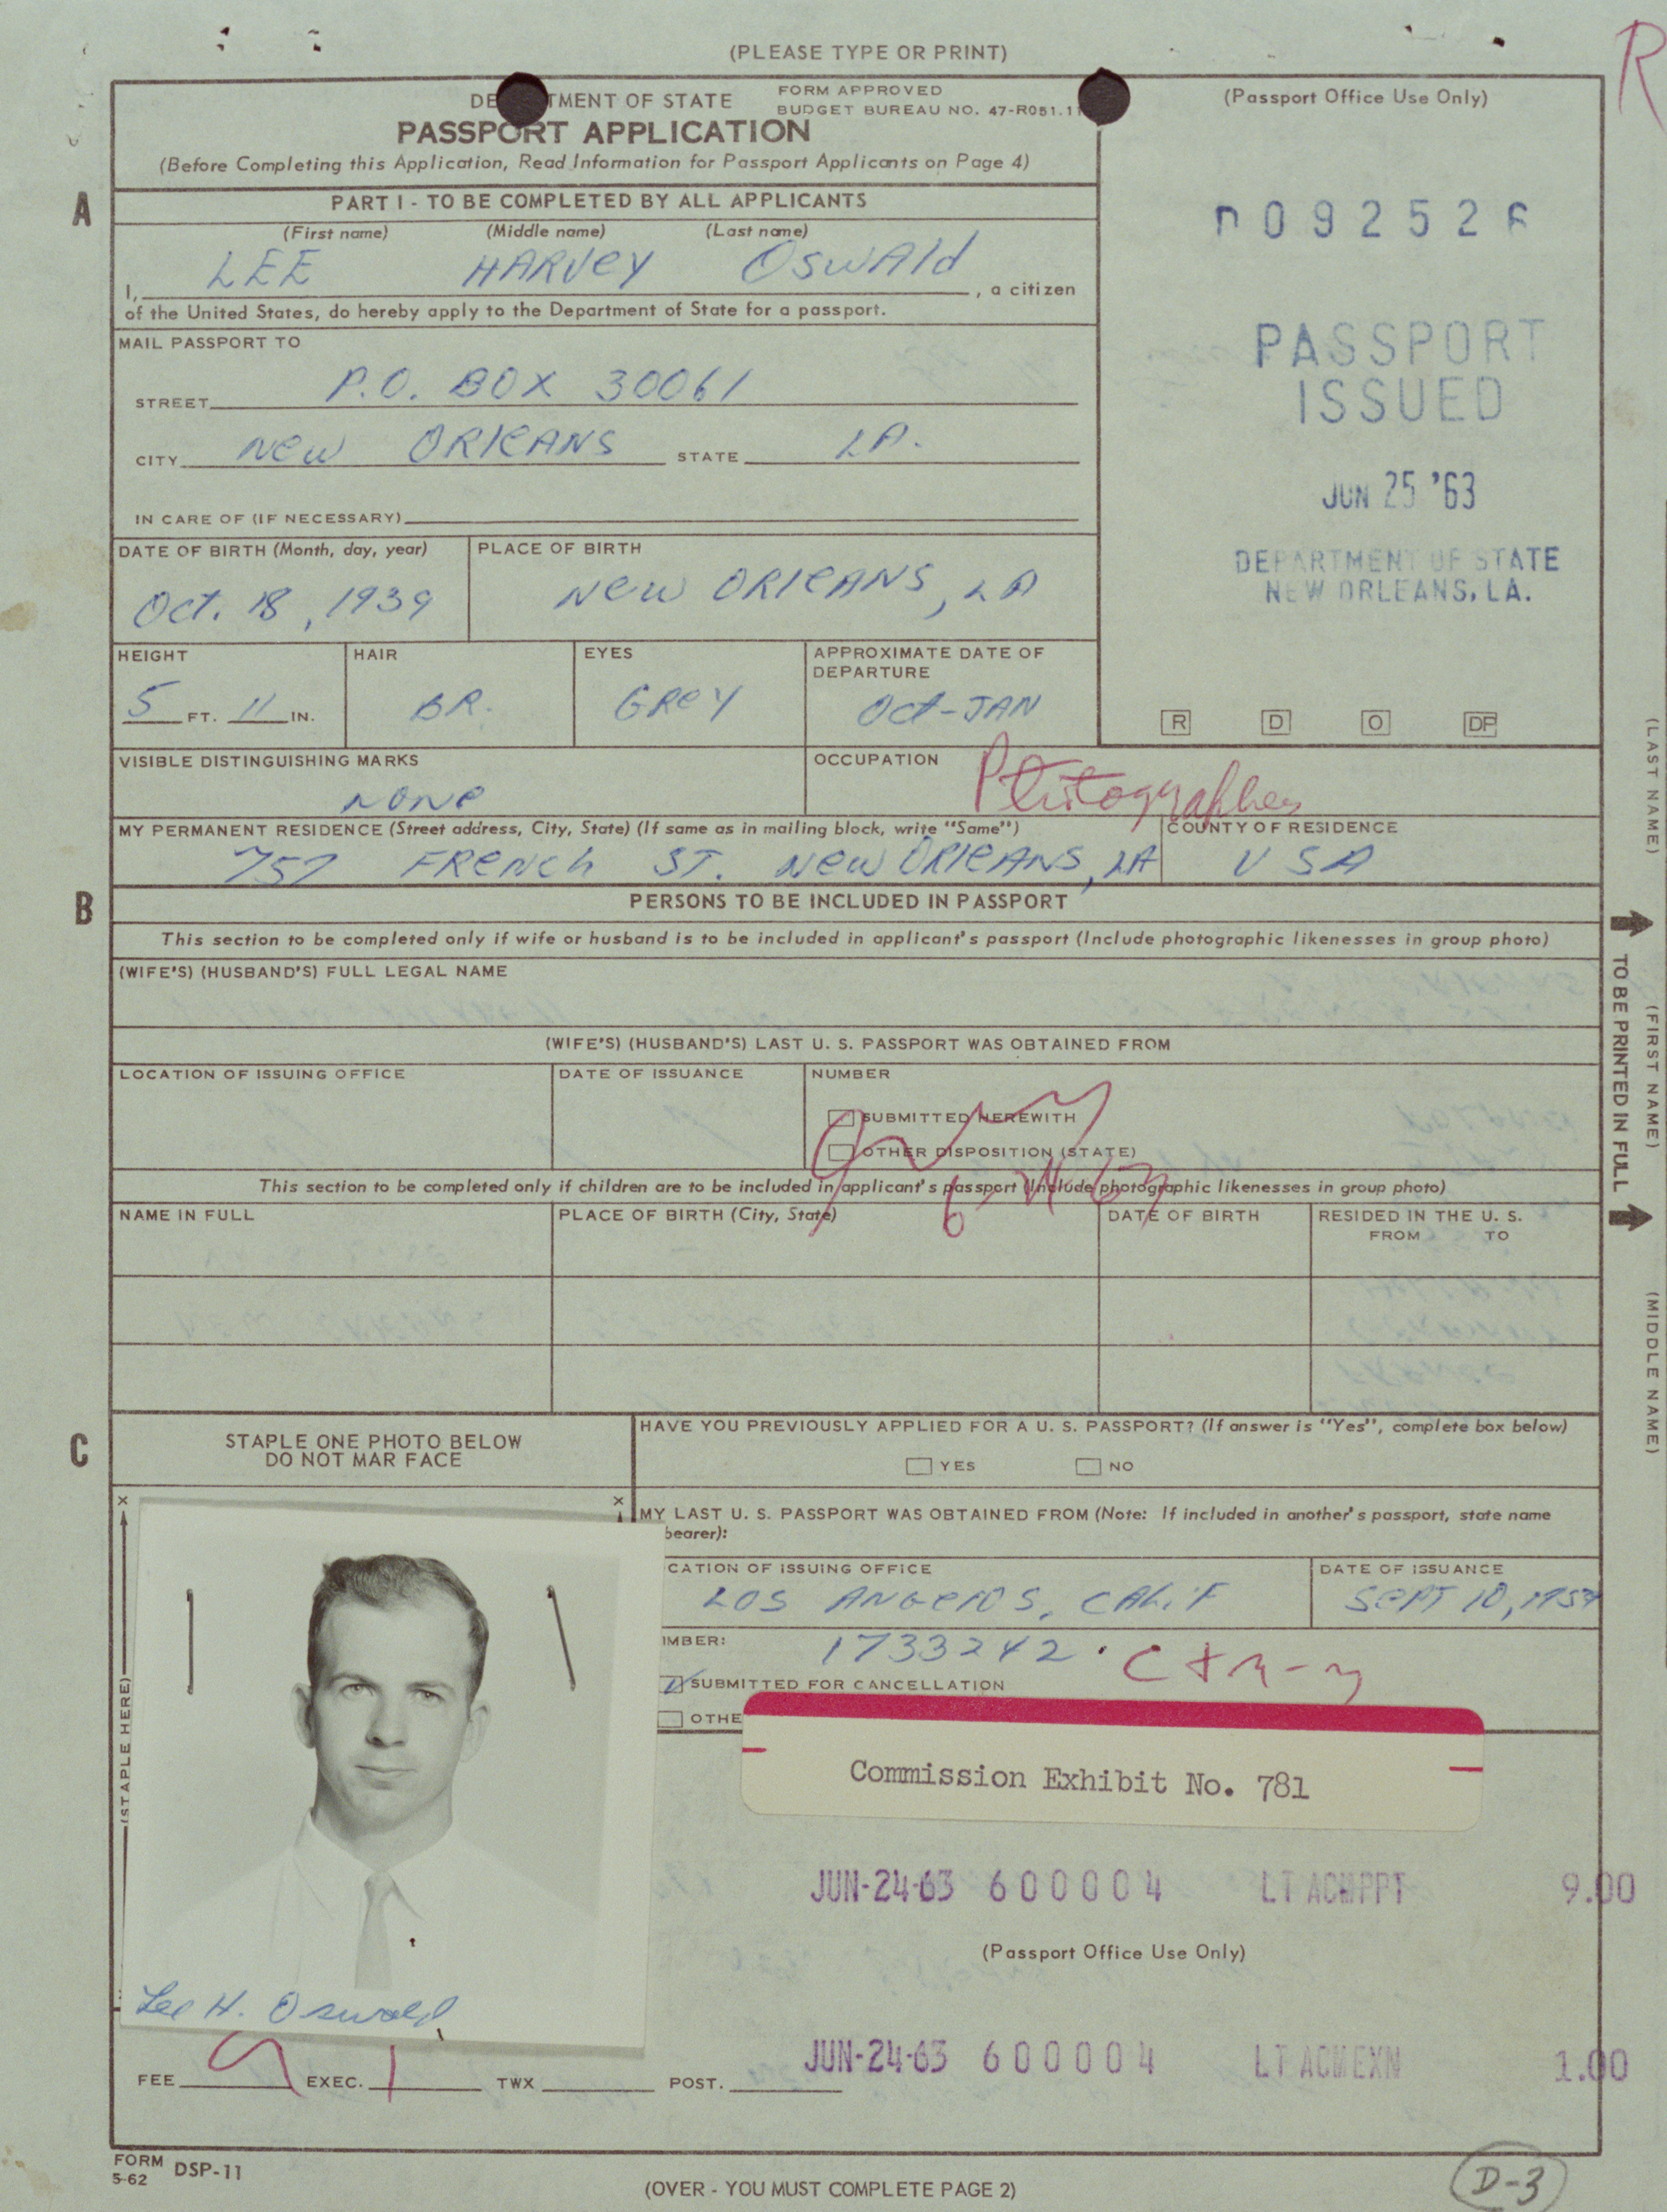 (PLEASE TYPE OR PRINT)
R
DE TMENT OF STATE
FORM APPROVED
BUDGET BUREAU NO. 47-R051.1
PASSPORT APPLICATION
(Before Completing this Application, Read Information for Passport Applicants on Page 4)
(Passport Office Use Only)
092526
PASSPORT
ISSUED
JUN 25 '63
DEPARTMENT OF STATE
NEW ORLEANS, LA.
R D O DP
A
PART I - TO BE COMPLETED BY ALL APPLICANTS
(First name) (Middle name) (Last name)
I, LEE HARVEY OSWALD, a citizen
of the United States, do hereby apply to the Department of State for a passport.
MAIL PASSPORT TO
STREET P.O. BOX 30061
CITY NEW ORLEANS STATE LA.
IN CARE OF (IF NECESSARY)
DATE OF BIRTH (Month, day, year) PLACE OF BIRTH
Oct. 18, 1939 NEW ORLEANS, LA
HEIGHT HAIR EYES APPROXIMATE DATE OF
DEPARTURE
5 FT. 11 IN. BR. GREY Oct-JAN
VISIBLE DISTINGUISHING MARKS OCCUPATION
NONE Photographer
MY PERMANENT RESIDENCE (Street address, City, State) (If same as in mailing block, write "Same") COUNTY OF RESIDENCE
757 FRENCH ST. NEW ORLEANS, LA USA
B
PERSONS TO BE INCLUDED IN PASSPORT
This section to be completed only if wife or husband is to be included in applicant's passport (Include photographic likenesses in group photo)
(WIFE'S) (HUSBAND'S) FULL LEGAL NAME
(WIFE'S) (HUSBAND'S) LAST U. S. PASSPORT WAS OBTAINED FROM
LOCATION OF ISSUING OFFICE DATE OF ISSUANCE NUMBER
SUBMITTED HEREWITH
OTHER DISPOSITION (STATE)
This section to be completed only if children are to be included in applicant's passport (Include photographic likenesses in group photo)
NAME IN FULL PLACE OF BIRTH (City, State) DATE OF BIRTH RESIDED IN THE U. S.
FROM TO
(LAST NAME)
TO BE PRINTED IN FULL
(FIRST NAME)
(MIDDLE NAME)
C
STAPLE ONE PHOTO BELOW
DO NOT MAR FACE
HAVE YOU PREVIOUSLY APPLIED FOR A U. S. PASSPORT? (If answer is "Yes", complete box below)
YES NO
X X
(STAPLE HERE)
MY LAST U. S. PASSPORT WAS OBTAINED FROM (Note: If included in another's passport, state name
bearer):
CATION OF ISSUING OFFICE DATE OF ISSUANCE
LOS ANGELOS, CALIF SEPT 10, 1959
MBER: 1733242
SUBMITTED FOR CANCELLATION
OTHE
Commission Exhibit No. 781
JUN-24-63 600004 LT ACMPPT 9.00
(Passport Office Use Only)
Lee H. Oswald
JUN-24-63 600004 LT ACMEXN 1.00
FEE 9 EXEC. 1 TWX POST.
FORM
5-62 DSP-11
(OVER - YOU MUST COMPLETE PAGE 2)
D-3